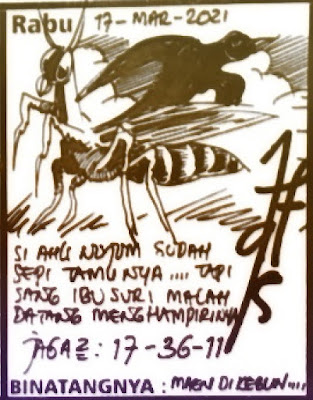 Rabu 17-MAR-2021
SI AHLI NUJUM SUDAH
SEPI TAMUNYA .... TAPI
SANG IBU SURI MALAH
DATANG MENGHAMPIRINYA
JAGAZ : 17-36-11
BINATANGNYA : MAEN DI KEBUN....